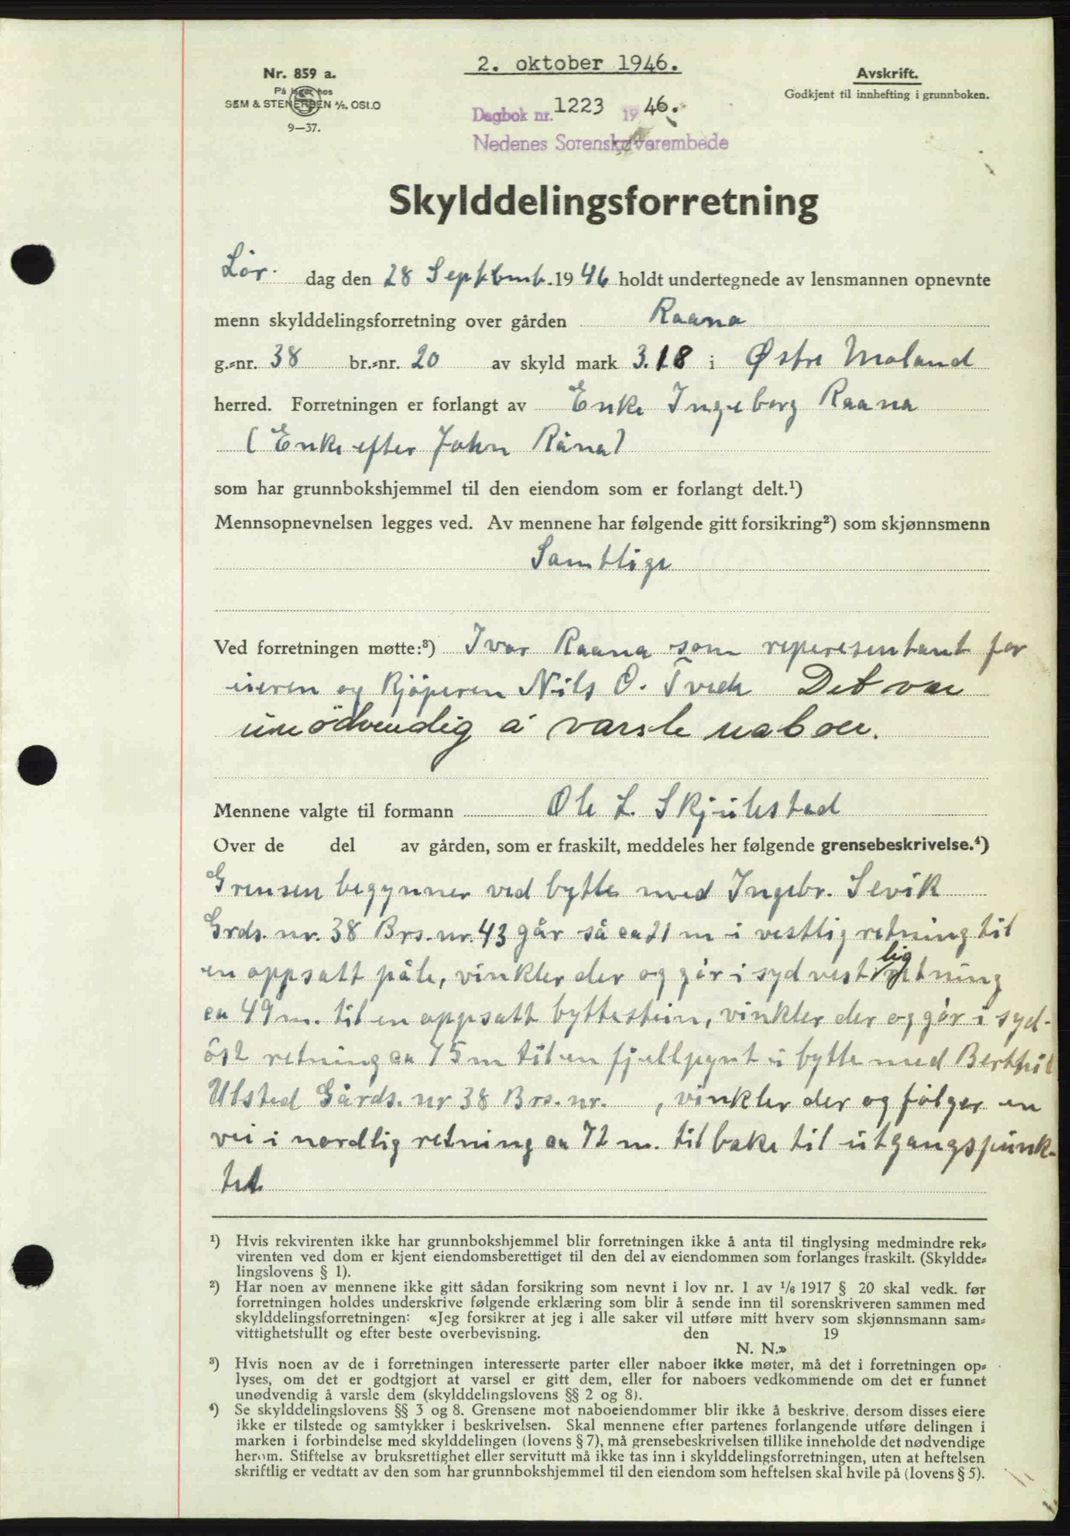 2. oktober 1946.
Nr. 859 a.
På lager hos
SEM & STENERSEN A/S. OSLO
9—37.
Avskrift.
Godkjent til innhefting i grunnboken.
Dagbok nr. 1223 1946.
Nedenes Sorenskriverembede
Skylddelingsforretning
Lør. dag den 28 Septbmb. 1946 holdt undertegnede av lensmannen opnevnte
menn skylddelingsforretning over gården Raana
g.-nr. 38 br.-nr. 20 av skyld mark 3.18 i Østre Moland
herred. Forretningen er forlangt av Enke Ingeborg Raana
(Enke efter John Råna)
som har grunnbokshjemmel til den eiendom som er forlangt delt.¹)
Mennsopnevnelsen legges ved. Av mennene har følgende gitt forsikring²) som skjønnsmenn
Samtlige
Ved forretningen møtte:³) Ivar Raana som representant for
eieren og kjøperen Nils O. Tvede Det var
unødvendig å varsle naboer.
Mennene valgte til formann Ole L. Skjulestad
Over de del av gården, som er fraskilt, meddeles her følgende grensebeskrivelse.⁴)
Grensen begynner ved bytte med Ingebr. Sevik
Grds. nr. 38 Brs. nr. 43 går så ca 21 m i vestlig retning til
en oppsatt påle, vinkler der og går i sydvestlig retning
ca 49 m. til en oppsatt byttestein, vinkler der og går i syd-
öst retning ca 75 m til en fjellpynt i bytte med Berthil
Ulsted Gårds. nr 38 Brs. nr. , vinkler der og følger en
vei i nordlig retning ca 72 m. tilbake til utgangspunk-
tet
¹) Hvis rekvirenten ikke har grunnbokshjemmel blir forretningen ikke å anta til tinglysing medmindre rek-
virenten ved dom er kjent eiendomsberettiget til den del av eiendommen som forlanges fraskilt. (Skyldde-
lingslovens § 1).
²) Har noen av mennene ikke gitt sådan forsikring som nevnt i lov nr. 1 av 1/6 1917 § 20 skal vedk. før
forretningen holdes underskrive følgende erklæring som blir å sende inn til sorenskriveren sammen med
skylddelingsforretningen: «Jeg forsikrer at jeg i alle saker vil utføre mitt hverv som skjønnsmann sam-
vittighetsfullt og efter beste overbevisning. den 19
N. N.»
³) Hvis noen av de i forretningen interesserte parter eller naboer ikke møter, må det i forretningen op-
lyses, om det er godtgjort at varsel er gitt dem, eller for naboers vedkommende om det er funnet
unødvendig å varsle dem (skylddelingslovens §§ 2 og 8).
⁴) Se skylddelingslovens §§ 3 og 8. Grensene mot naboeiendommer blir ikke å beskrive, dersom disses eiere
ikke er tilstede og samtykker i beskrivelsen. Skal mennene efter partenes forlangende utføre delingen i
marken i forbindelse med skylddelingen (lovens § 7), må grensebeskrivelsen tillike inneholde det nødvendige
herom. Stiftelse av bruksrettighet eller servitutt må ikke tas inn i skylddelingsforretningen, uten at heftelsen
skriftlig er vedtatt av den som har grunnbokshjemmel til den eiendom som heftelsen skal hvile på (lovens § 5).